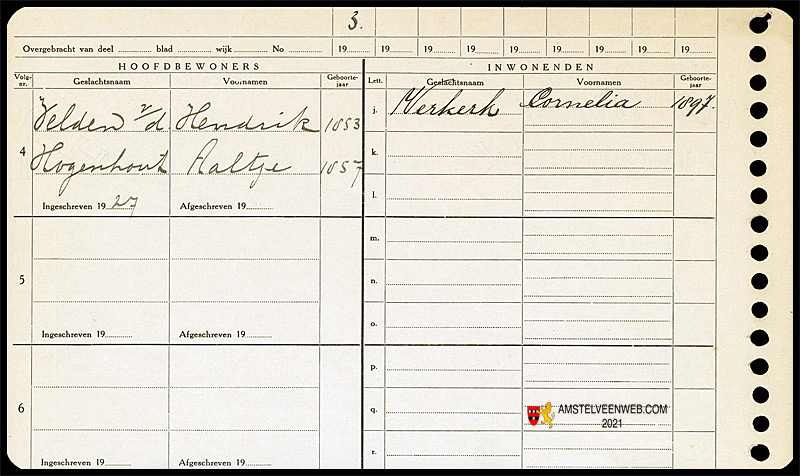 3.
Overgebracht van deel ............ blad ............ wijk ............ No ............ 19..... 19..... 19..... 19..... 19..... 19..... 19..... 19..... 19.....
HOOFDBEWONERS INWONENDEN
Volg-nr. Geslachtsnaam Voornamen Geboorte-jaar Lett. Geslachtsnaam Voornamen Geboorte-jaar
Velden v/d Hendrik 1853 j. Verkerk Cornelia 1897.
4 Hogenhout Aaltje 1857 k.
Ingeschreven 19 27 Afgeschreven 19..... l.
m.
5 n.
Ingeschreven 19..... Afgeschreven 19..... o.
p.
6 q.
Ingeschreven 19..... Afgeschreven 19..... r.
AMSTELVEENWEB.COM
2021